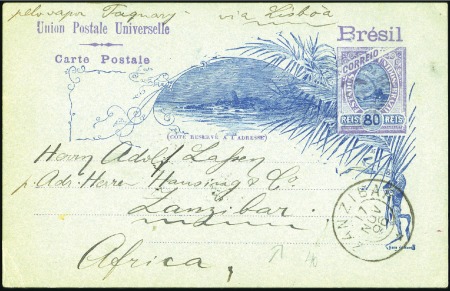 pelo vapor Taguary via Lisboa
Union Postale Universelle
Brésil
Carte Postale
CORREIO
REIS 80 REIS
(CÔTÉ RÉSERVÉ A L'ADRESSE)
Herrn Adolf
p. Adr. Herren Hansing & Co.
Zanzibar
Africa
ZANZIBAR
17
NOV